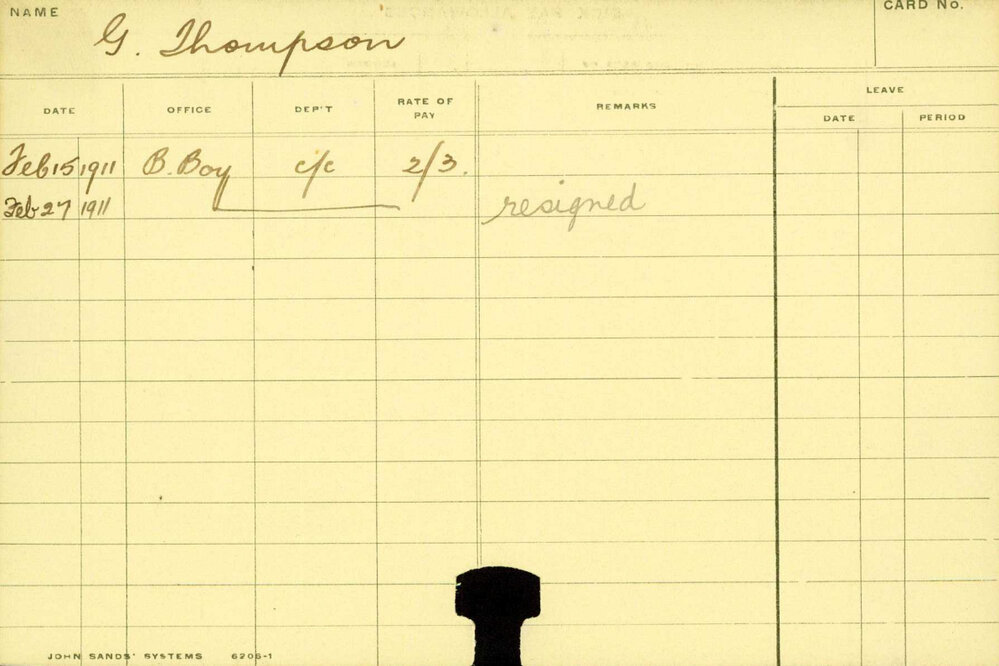 NAME G. Thompson CARD No.
DATE OFFICE DEP'T RATE OF PAY REMARKS LEAVE
DATE PERIOD
Feb 15 1911 B. Boy c/c 2/3.
Feb 27 1911 resigned
JOHN SANDS' SYSTEMS 6206-1